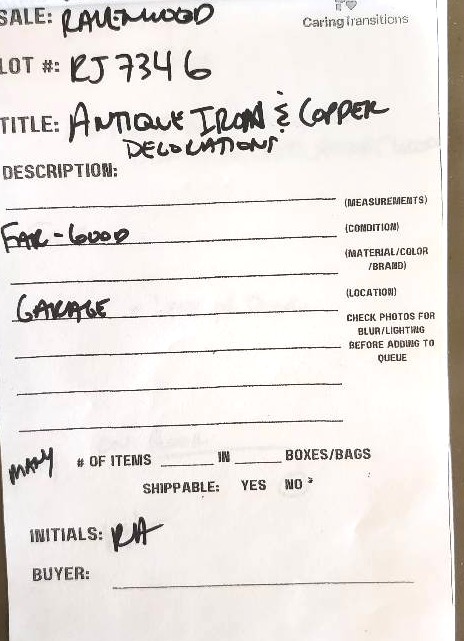 SALE: RAVENWOOD
CaringTransitions
LOT #: RJ7346
TITLE: ANTIQUE IRON & COPPER
DECORATIONS
DESCRIPTION:
(MEASUREMENTS)
FAIR-GOOD (CONDITION)
(MATERIAL/COLOR
/BRAND)
GARAGE (LOCATION)
CHECK PHOTOS FOR
BLUR/LIGHTING
BEFORE ADDING TO
QUEUE
MANY # OF ITEMS ____ IN ____ BOXES/BAGS
SHIPPABLE: YES NO*
INITIALS: RA
BUYER: